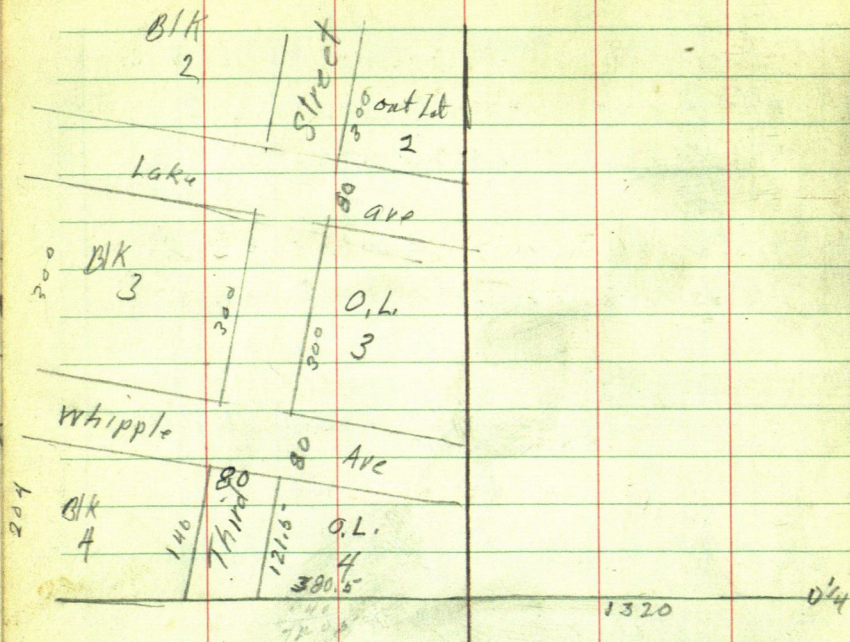 Blk
2
Street
300
out Lt
2
Lake
80
ave
300
Blk
3
300
300
O.L.
3
Whipple
80
Ave
204
Blk
4
140
80
Third
121.5
O.L.
4
380.5
1320